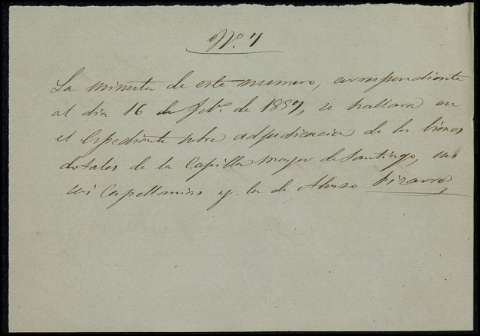 Nº. 7
La minuta de este numero, correspondiente
al dia 16 de Febº. de 1857, se hallará en
el Espediente sobre adjudicacion de los bienes
dotales de la Capilla mayor de Santiago,
Capellanias y la de Alonso Pizarro,